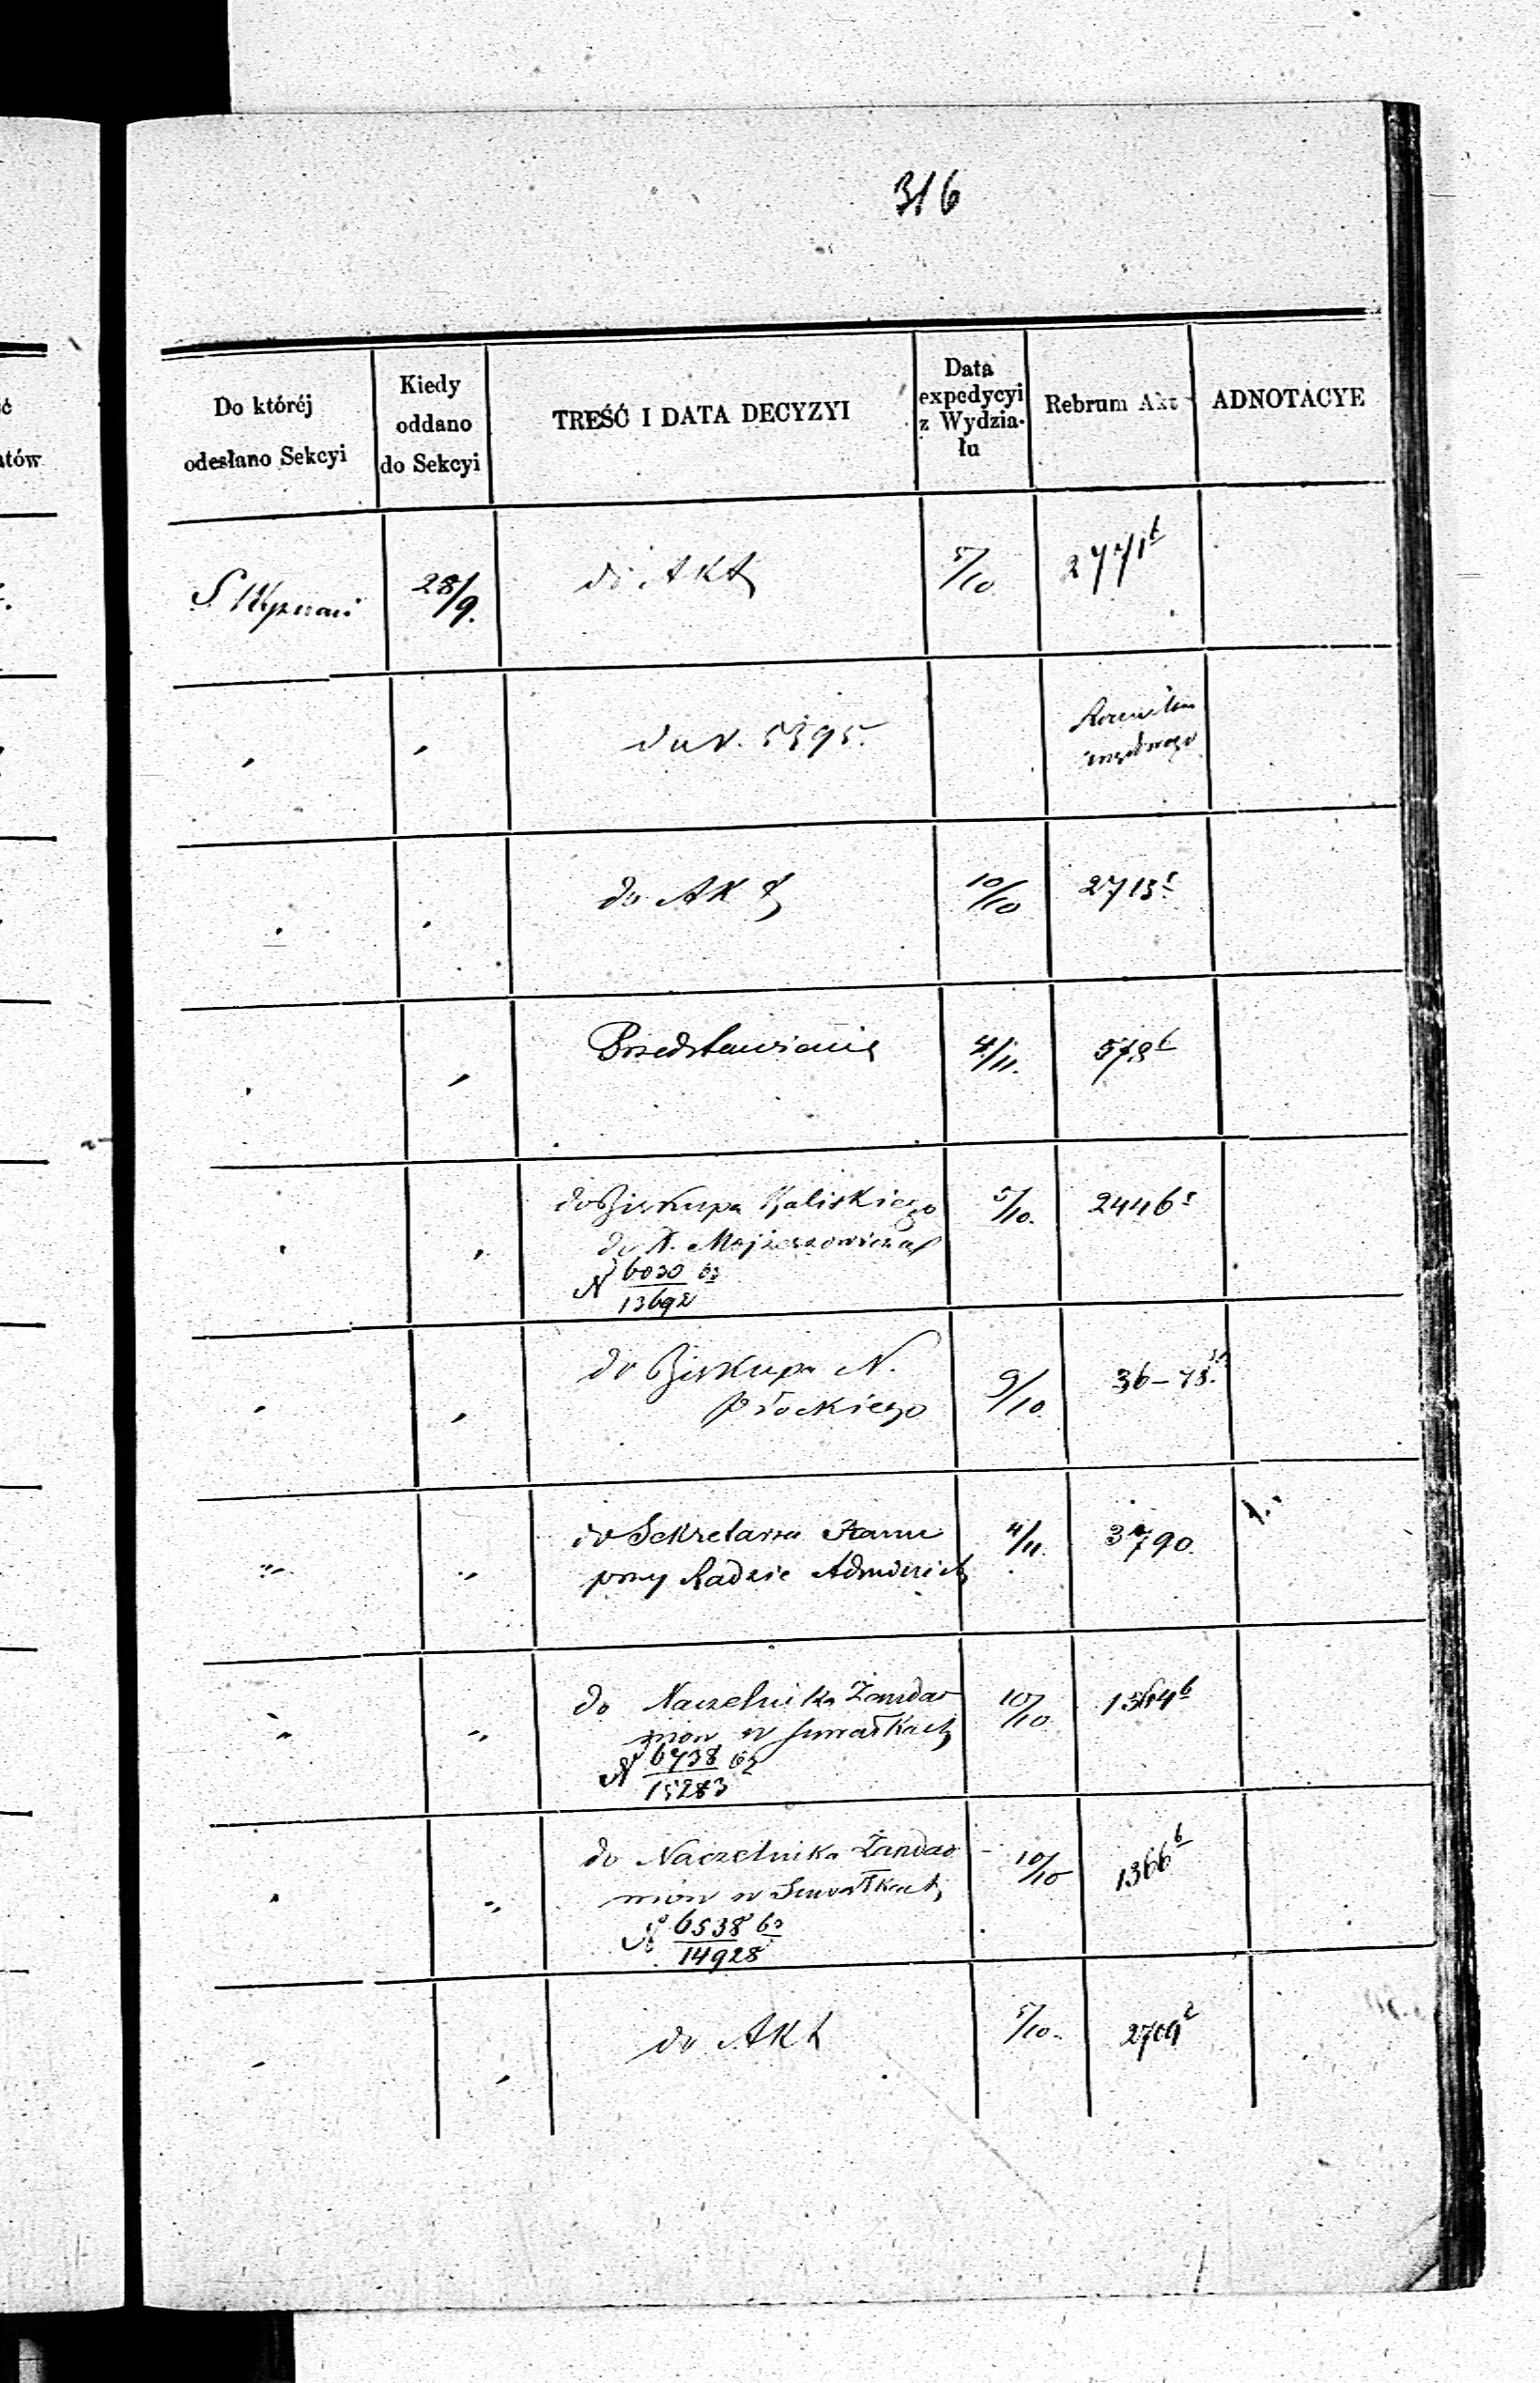 316
Do któréj
odesłano Sekcyi
Kiedy
oddano
do Sekcyi
TREŚĆ I DATA DECYZYI
Data
expedycyi
z Wydzia-
łu
Rebrum Akt
ADNOTACYE
S. Wyznań
28/9.
do Akt
5/10
2771 b
do N. 5395.
do Akt
10/10
2713 c
Przedstawienie
4/11.
578 b
do Biskupa Kaliskiego
do X. Mojżeszowicza
N 6030 63
13692
5/10.
2446 c
do Biskupa N.
Płockiego
9/10.
36-73.
do Sekretarza Stanu
przy Radzie Administr
4/11.
3790.
do Naczelnika Żandar
mów w Suwałkach
N 6738 63
15283
10/10
1364 b
do Naczelnika Żandar-
mów w Suwałkach
N 6538 63
14928
10/10
1366 b
do Akt
5/10.
2709 b